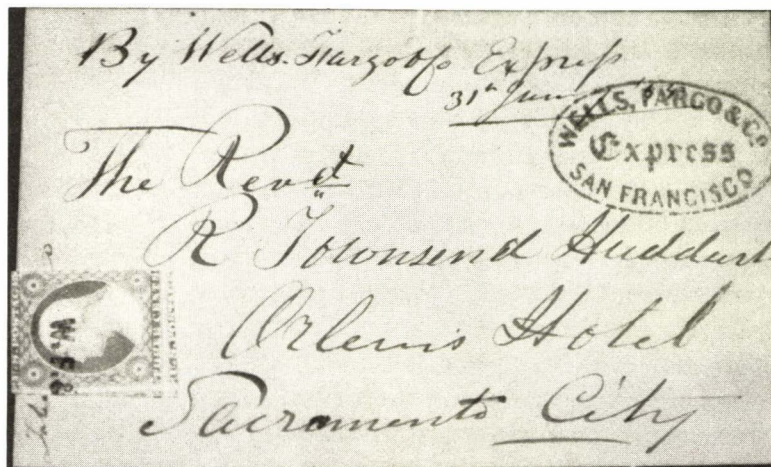 By Wells. Fargo & Co Express
31st Jany
WELLS, FARGO & Co
Express
SAN FRANCISCO
The Revd
R Townsend Huddart
Orleans Hotel
Sacramento City
W. F. &